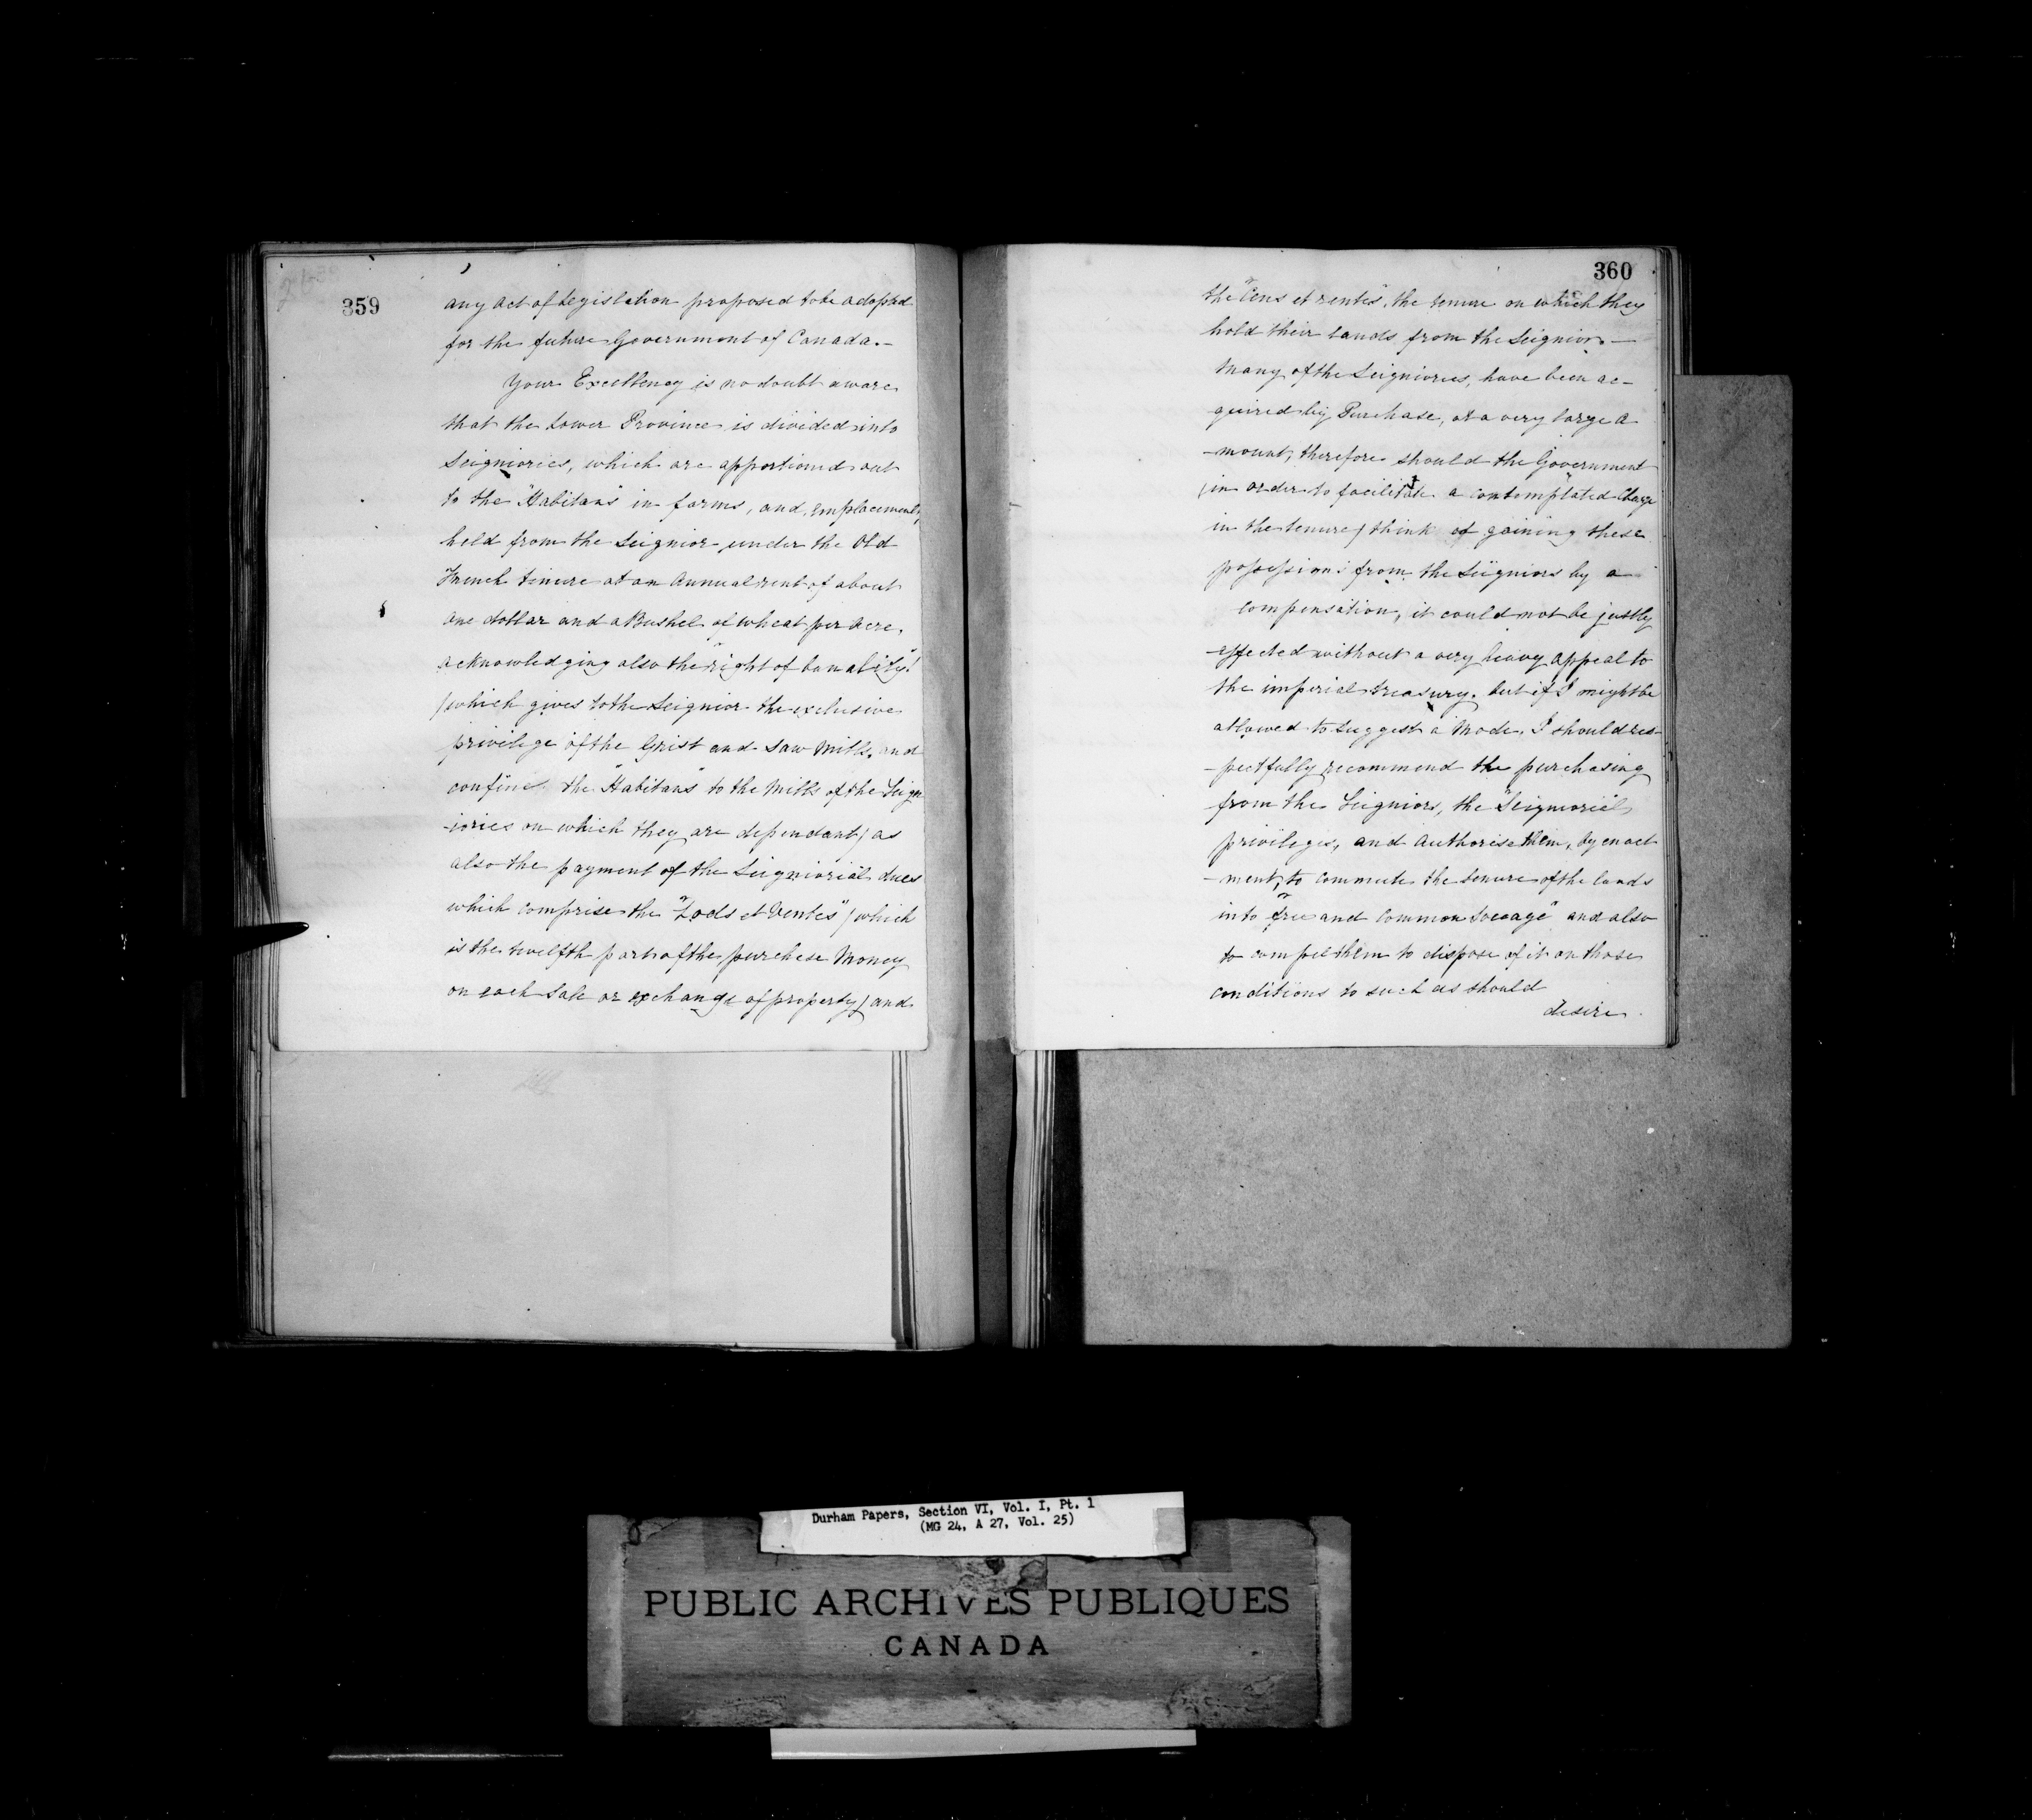 359
any act of Legislation proposed to be adopted
for the future Government of Canada.—
Your Excellency is no doubt aware
that the Lower Province is divided into
Seigniories, which are apportioned out
to the "Habitans" in farms, and emplacements,
held from the Seignior under the Old
French tenure at an Annual rent of about
one dollar and a Bushel of wheat per Acre,
acknowledging also the "right of banality"
(which gives to the Seignior the exclusive
privilege of the Grist and Saw Mills, and
confine the "Habitans" to the Mills of the Seign
-iories on which they are dependant) as
also the payment of the Seigniorial dues
which comprise the "Lods et Ventes" (which
is the twelfth part of the purchase Money
on each Sale or exchange of property) and
360
the "Cens et rentes", the tenure on which they
hold their lands from the Seignior.—
Many of the Seigniories, have been ac-
quired by Purchase, at a very large a
-mount, therefore should the Government
(in order to facilitate a contemplated Change
in the tenure) think of gaining these
possessions from the Seigniors by a
compensation, it could not be justly
effected without a very heavy appeal to
the imperial treasury. but if I might be
allowed to suggest a Mode, I should res-
-pectfully recommend the purchasing
from the Seigniors, the Seigniorial
privileges, and Authorise them, by enact
-ment, to commute the tenure of the lands
into "free and Common Soccage" and also
to compel them to dispose of it on those
conditions to such as should
desire
Durham Papers, Section VI, Vol. I, Pt. 1
(MG 24, A 27, Vol. 25)
PUBLIC ARCHIVES PUBLIQUES
CANADA